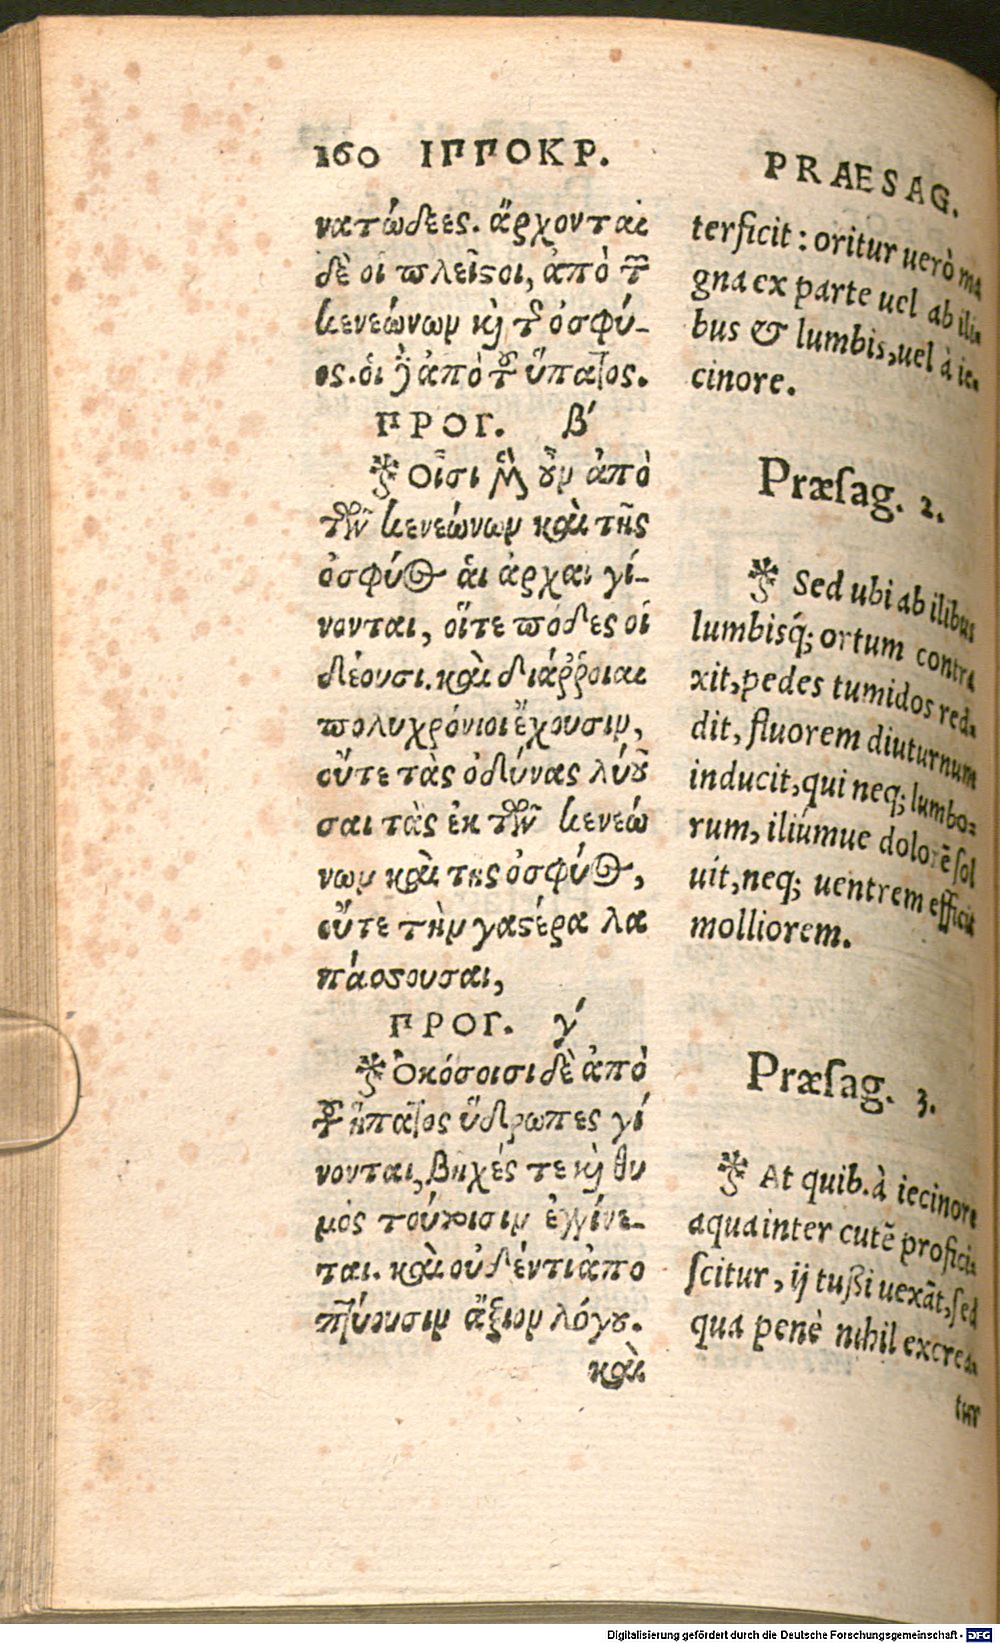 160 ΙΠΠΟΚΡ.
νατώδεες. ἄρχονται
δὲ οἱ πλεῖστοι, ἀπὸ τῶν
κενεώνων καὶ τῆς ὀσφύ-
ος. οἱ δὲ ἀπὸ τοῦ ὕπατος.
ΠΡΟΓ. β´
Οἷσι μὲν οὖν ἀπὸ
τῶν κενεώνων καὶ τῆς
ὀσφύος αἱ ἀρχαι γί-
νονται, οἵτε πόδες οἰ
δέουσι. καὶ διάῤῥοιαι
πολυχρόνιοι ἔχουσιν,
οὔτε τὰς ὀδύνας λύου
σαι τὰς ἐκ τῶν κενεώ
νων καὶ της ὀσφύος,
οὔτε τὴν γαστέρα λα
πάσσουσαι,
ΠΡΟΓ. γ´
Ὁκόσοισι δὲ ἀπὸ
τοῦ ἥπατος ὕδρωπες γί
νονται, βηχές τε καὶ θυ
μὸς τούτοισιν ἐγγίνε-
ται. καὶ οὐδέντι ἀπο
πτύουσιν ἄξιον λόγου.
καὶ
PRAESAG.
terficit : oritur uerò ma
gna ex parte uel ab ili-
bus & lumbis, uel à ie-
cinore.
Præsag. 2.
Sed ubi ab ilibus
lumbisq́; ortum contra
xit, pedes tumidos red-
dit, fluorem diuturnum
inducit, qui neq; lumbo-
rum, iliúmue dolorẽ sol
uit, neq; uentrem efficit
molliorem.
Præsag. 3.
At quib. à iecinore
aqua inter cutẽ profici-
scitur, ij tußi uexãt, sed
qua penè nihil excrea-
tur
Digitalisierung gefördert durch die Deutsche Forschungsgemeinschaft - DFG